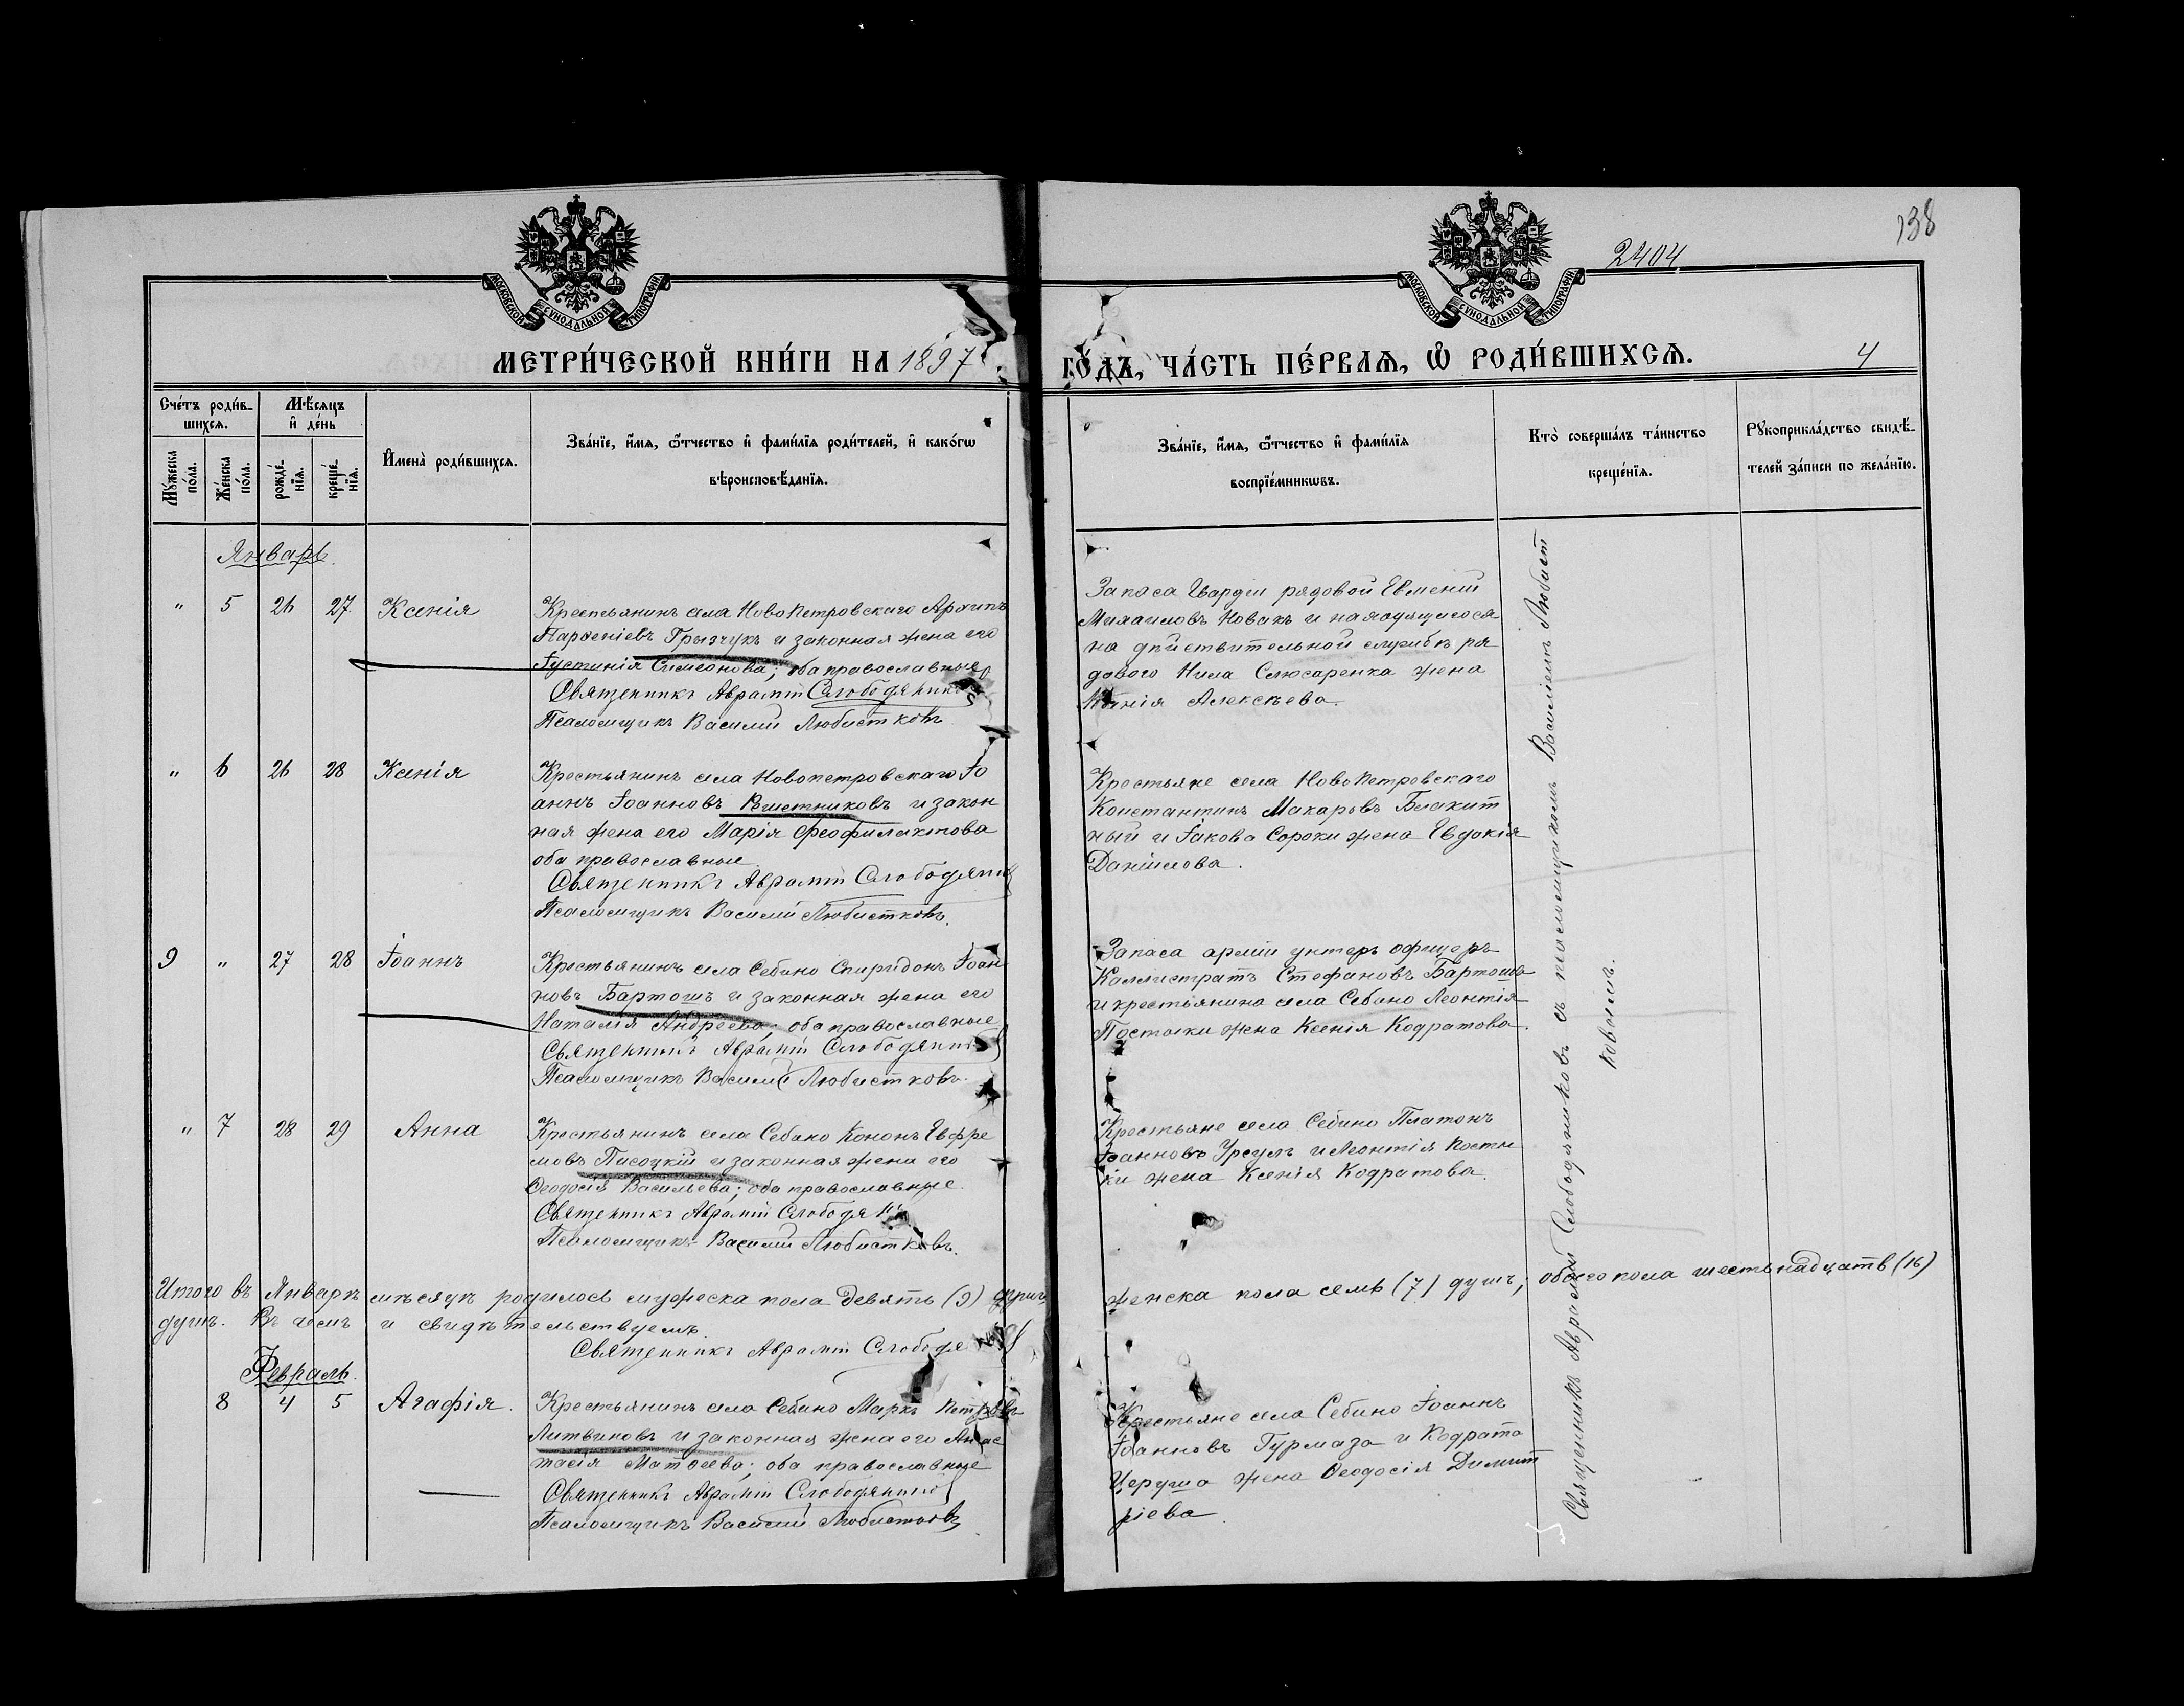 138
2404
МОСКОВСКОЙ СѴНОДАЛЬНОЙ ТИПОГРАФІИ
МОСКОВСКОЙ СѴНОДАЛЬНОЙ ТИПОГРАФІИ
МЕТРИ́ЧЕСКОЙ КНИ́ГИ НА 1897 ГО́ДЪ, ЧА́СТЬ ПЕ́РВАЯ, Ѡ РОДИ́ВШИХСЯ.
4
Сче́тъ роди́в-
шихся.
Му́жеска по́ла.
Же́нска по́ла.
Мѣ́сяцъ
и҆ де́нь
рожде́-
нїя.
креще́-
нїя.
И҆мена̀ роди́вшихся.
Зва́нїе, и҆́мя, ѻ҆́тчество и҆ фами́лїя роди́телей, и҆ како́гѡ
вѣроисповѣ́данїя.
Зва́нїе, и҆́мя, ѻ҆́тчество и҆ фами́лїя
воспрїе́мникѡвъ.
Кто̀ соверша́лъ та́инство
креще́нїя.
Рꙋкоприкла́дство свидѣ́-
телей за́писи по жела́нїю.
Январь.
" 5 26 27 Ксенія
Крестьянинъ села Новопетровскаго Архипъ
Парѳеніевъ Грызчукъ и законная жена его
Іустинія Симеонова; оба православные
Священникъ Аврамій Слободяников
Псаломщикъ Василий Любистковъ.
Запаса Гвардіи рядовой Евменій
Михаиловъ Новакъ и находящагося
на дѣйствительной службѣ ря
дового Нила Слюсаренка жена
Алексѣева.
" 6 26 28 Ксенія
Крестьянинъ села Новопетровскаго Іо
аннъ Іоанновъ и закон
ная жена его Марія Феофилактова
оба православные
Священникъ Аврамій Слободяни
Псаломщикъ Василий Любистковъ.
Крестьяне села Новопетровскаго
Константинъ Макаровъ Блакит
ный и Іакова Сороки жена Евдокія
Даніилова.
9 " 27 28 Іоаннъ
Крестьянинъ села Себино Спиридонъ Іоан
новъ Бартошъ и законная жена его
Наталія Андреева; оба православные
Священникъ Аврамій Слободяни
Псаломщикъ Василий Любистковъ.
Запаса арміи унтеръ офицеръ
Каллистратъ Стефановъ Бартошъ
и крестьянина села Себино Леонтія
Постыки жена Ксенія Кодратова.
" 7 28 29 Анна
Крестьянинъ села Себино Кононъ Евфре
мовъ Писоцкій и законная жена его
Ѳеодосія Васильева; оба православные.
Священникъ Аврамій Слободяни
Псаломщикъ Василий Любистковъ.
Крестьяне села Себино Платонъ
Іоанновъ Урсулъ и Леонтія Посты
ки жена Ксенія Кодратова.
Итого въ Январѣ мѣсяцѣ родилось мужеска пола девять (9) душъ женска пола семь (7) душъ; обоего пола шестьнадцать (16)
душъ. Въ чемъ и свидѣтельствуемъ.
Священникъ Аврамій Слободя
Февраль.
8 4 5 Агафія.
Крестьянинъ села Себино Маркъ Петровъ
Литвиновъ и законная жена его Анас
тасія Матѳеева; оба православные
Священникъ Аврамій Слободяников
Псаломщикъ Василий Любистковъ
Крестьяне села Себино Іоаннъ
Іоанновъ Гурмаза и Кодрата
Церуша жена Ѳеодосія Димит
ріева.
Священникъ Аврамій Слободяниковъ съ псаломщикомъ Василіемъ Любист
ковымъ.